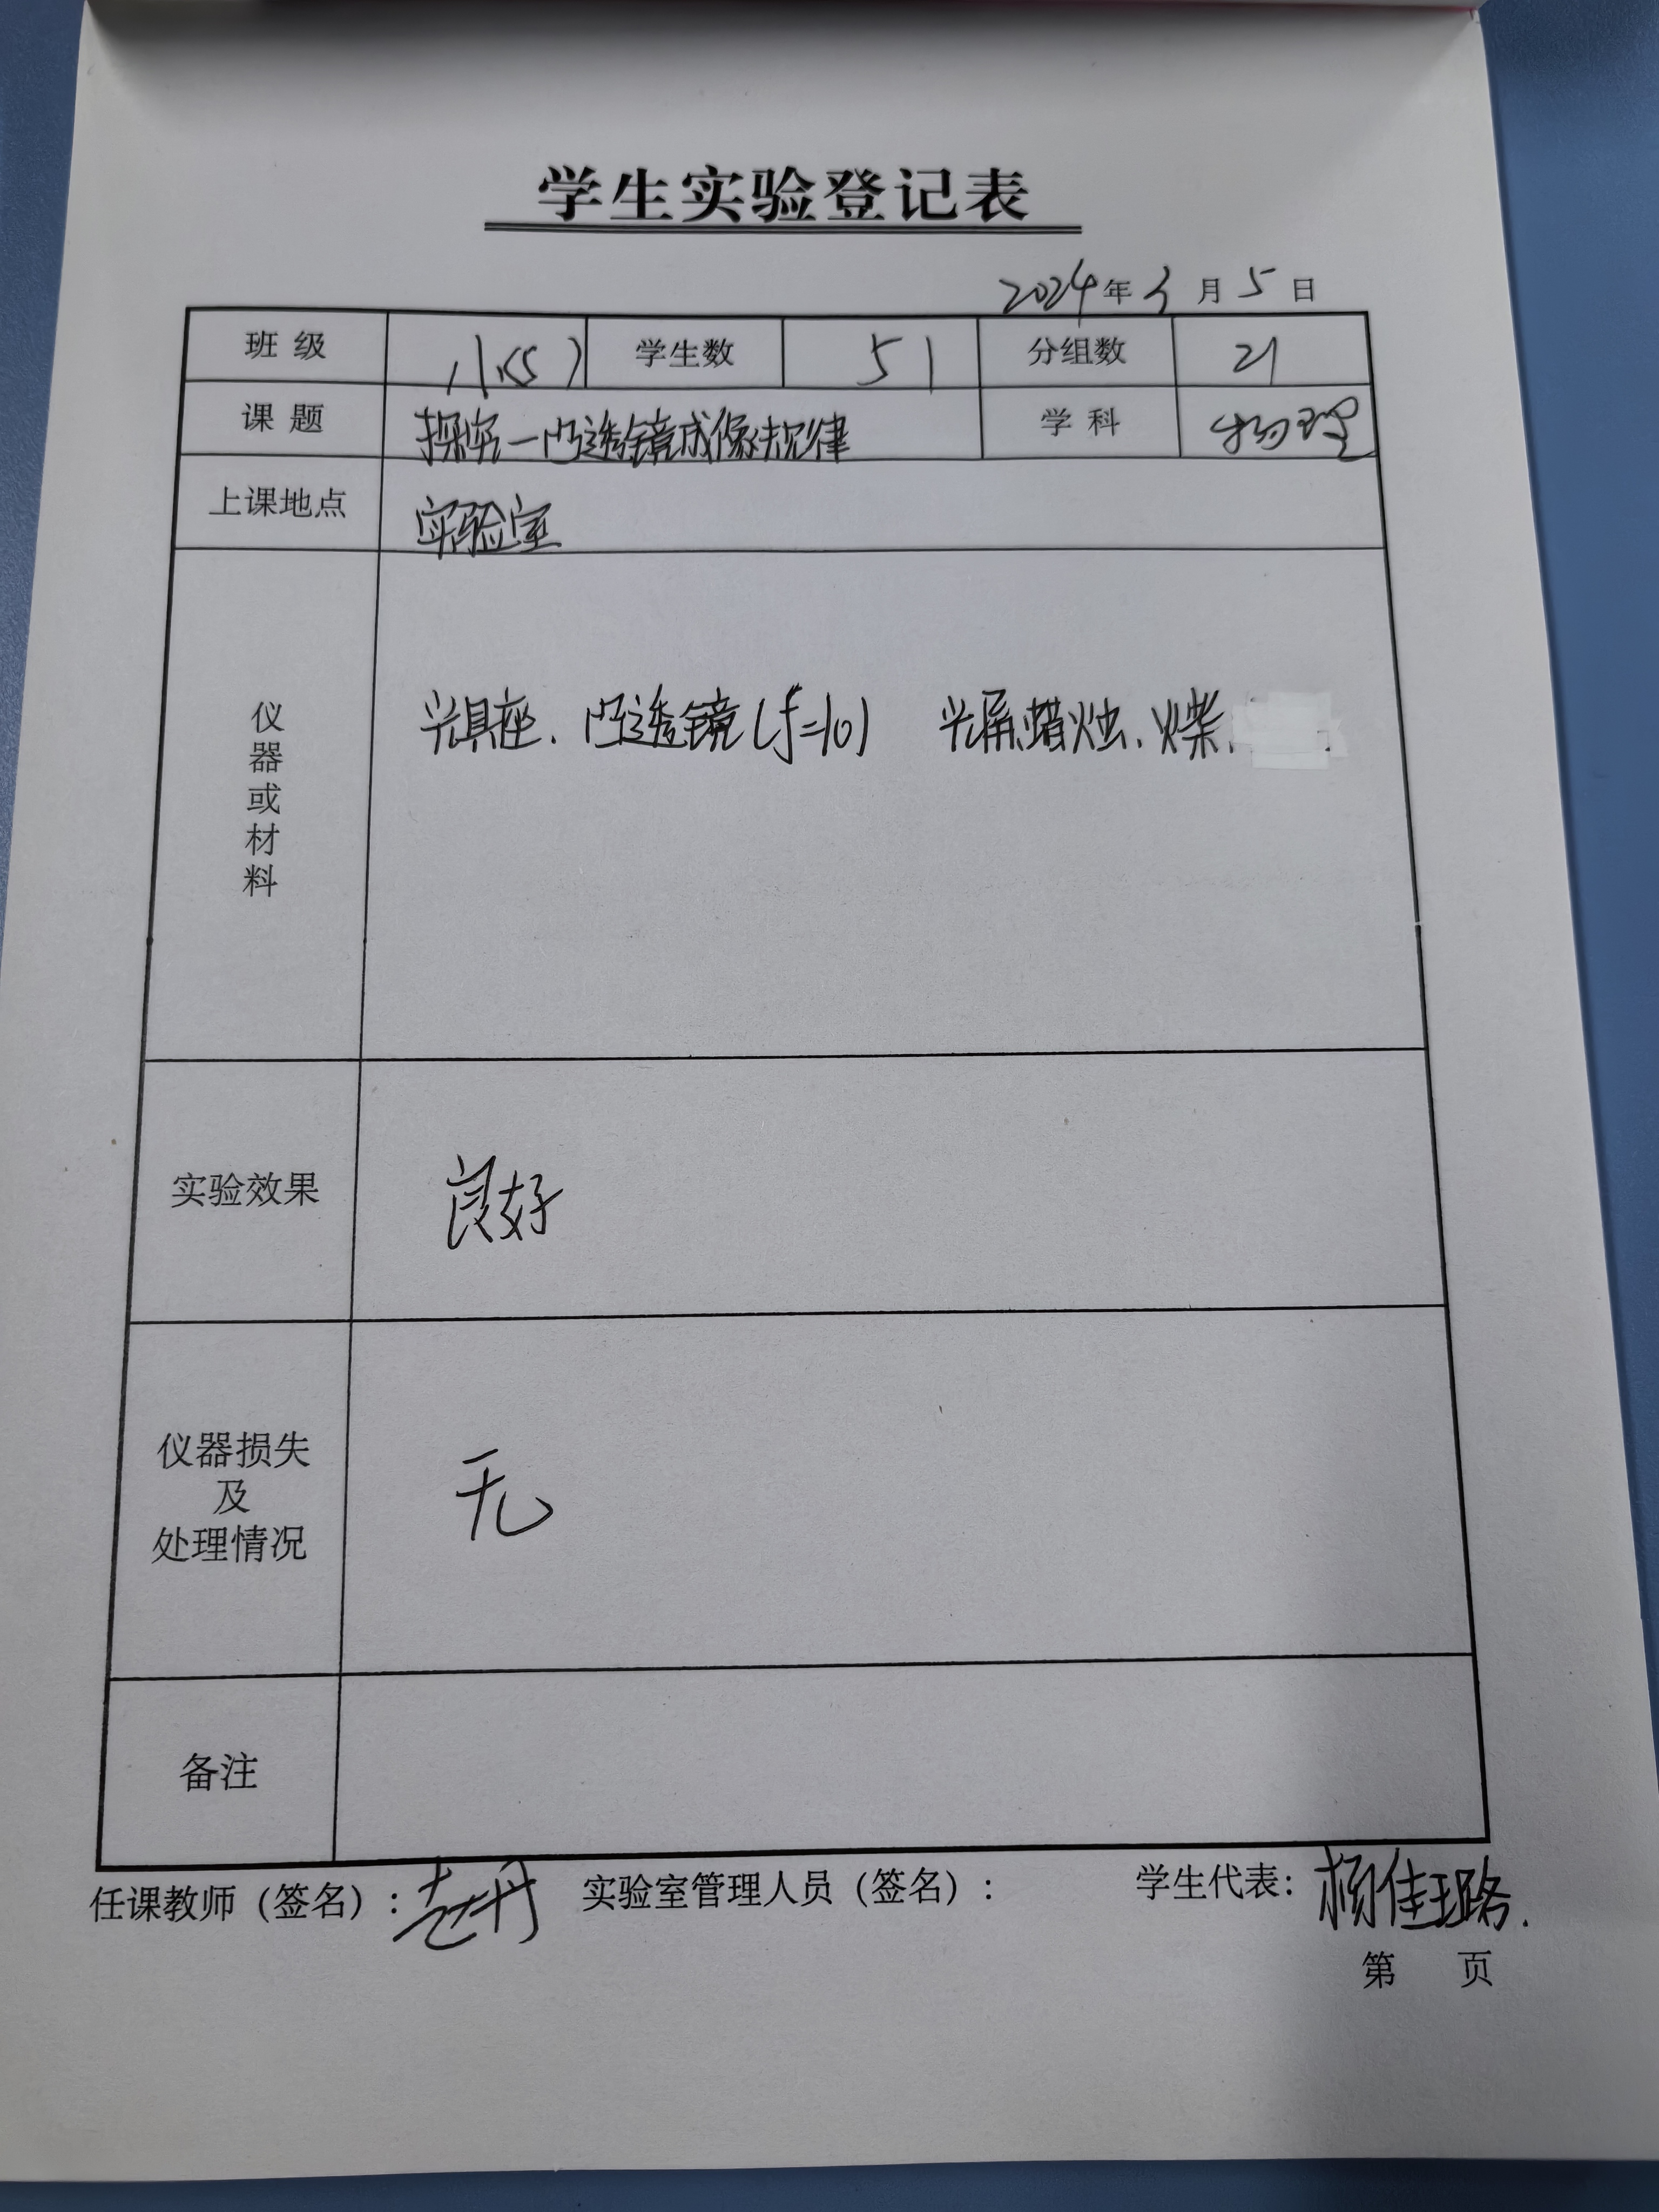 学生实验登记表
2024年3月5日
班级 八(5) 学生数 51 分组数 21
课题 探究一凸透镜成像规律 学科 物理
上课地点 实验室
仪器或材料 光具座、凸透镜(f=10) 光屏、蜡烛、火柴、
实验效果 良好
仪器损失及处理情况 无
备注
任课教师（签名）: 实验室管理人员（签名）: 学生代表: 杨佳璐.
第 页